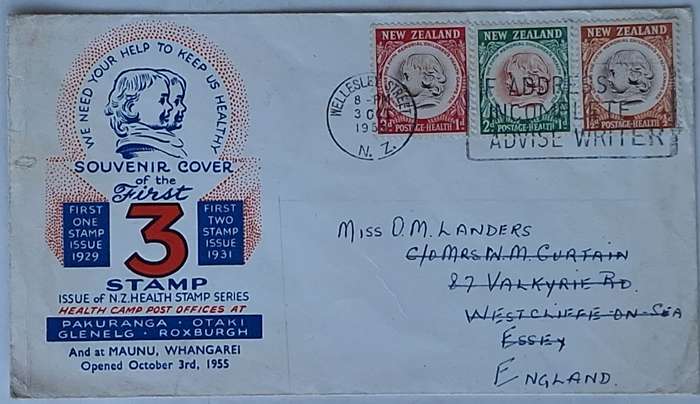 WE NEED YOUR HELP TO KEEP US HEALTHY
SOUVENIR COVER
of the
First
FIRST
ONE
STAMP
ISSUE
1929
3
FIRST
TWO
STAMP
ISSUE
1931
STAMP
ISSUE of N.Z. HEALTH STAMP SERIES
HEALTH CAMP POST OFFICES AT
PAKURANGA · OTAKI
GLENELG · ROXBURGH
And at MAUNU, WHANGAREI
Opened October 3rd, 1955
NEW ZEALAND
POSTAGE-HEALTH 1d
NEW ZEALAND
2d POSTAGE-HEALTH 1d
NEW ZEALAND
1½d POSTAGE-HEALTH ½d
WELLESLEY STREET
8-PM
3 OC
195
N. Z.
IF ADDRESS
INCOMPLETE
ADVISE WRITER
MISS D.M. LANDERS
C/O MRS N.M. CURTAIN
87 VALKYRIE RD.
WESTCLIFFE-ON-SEA
ESSEX
ENGLAND.